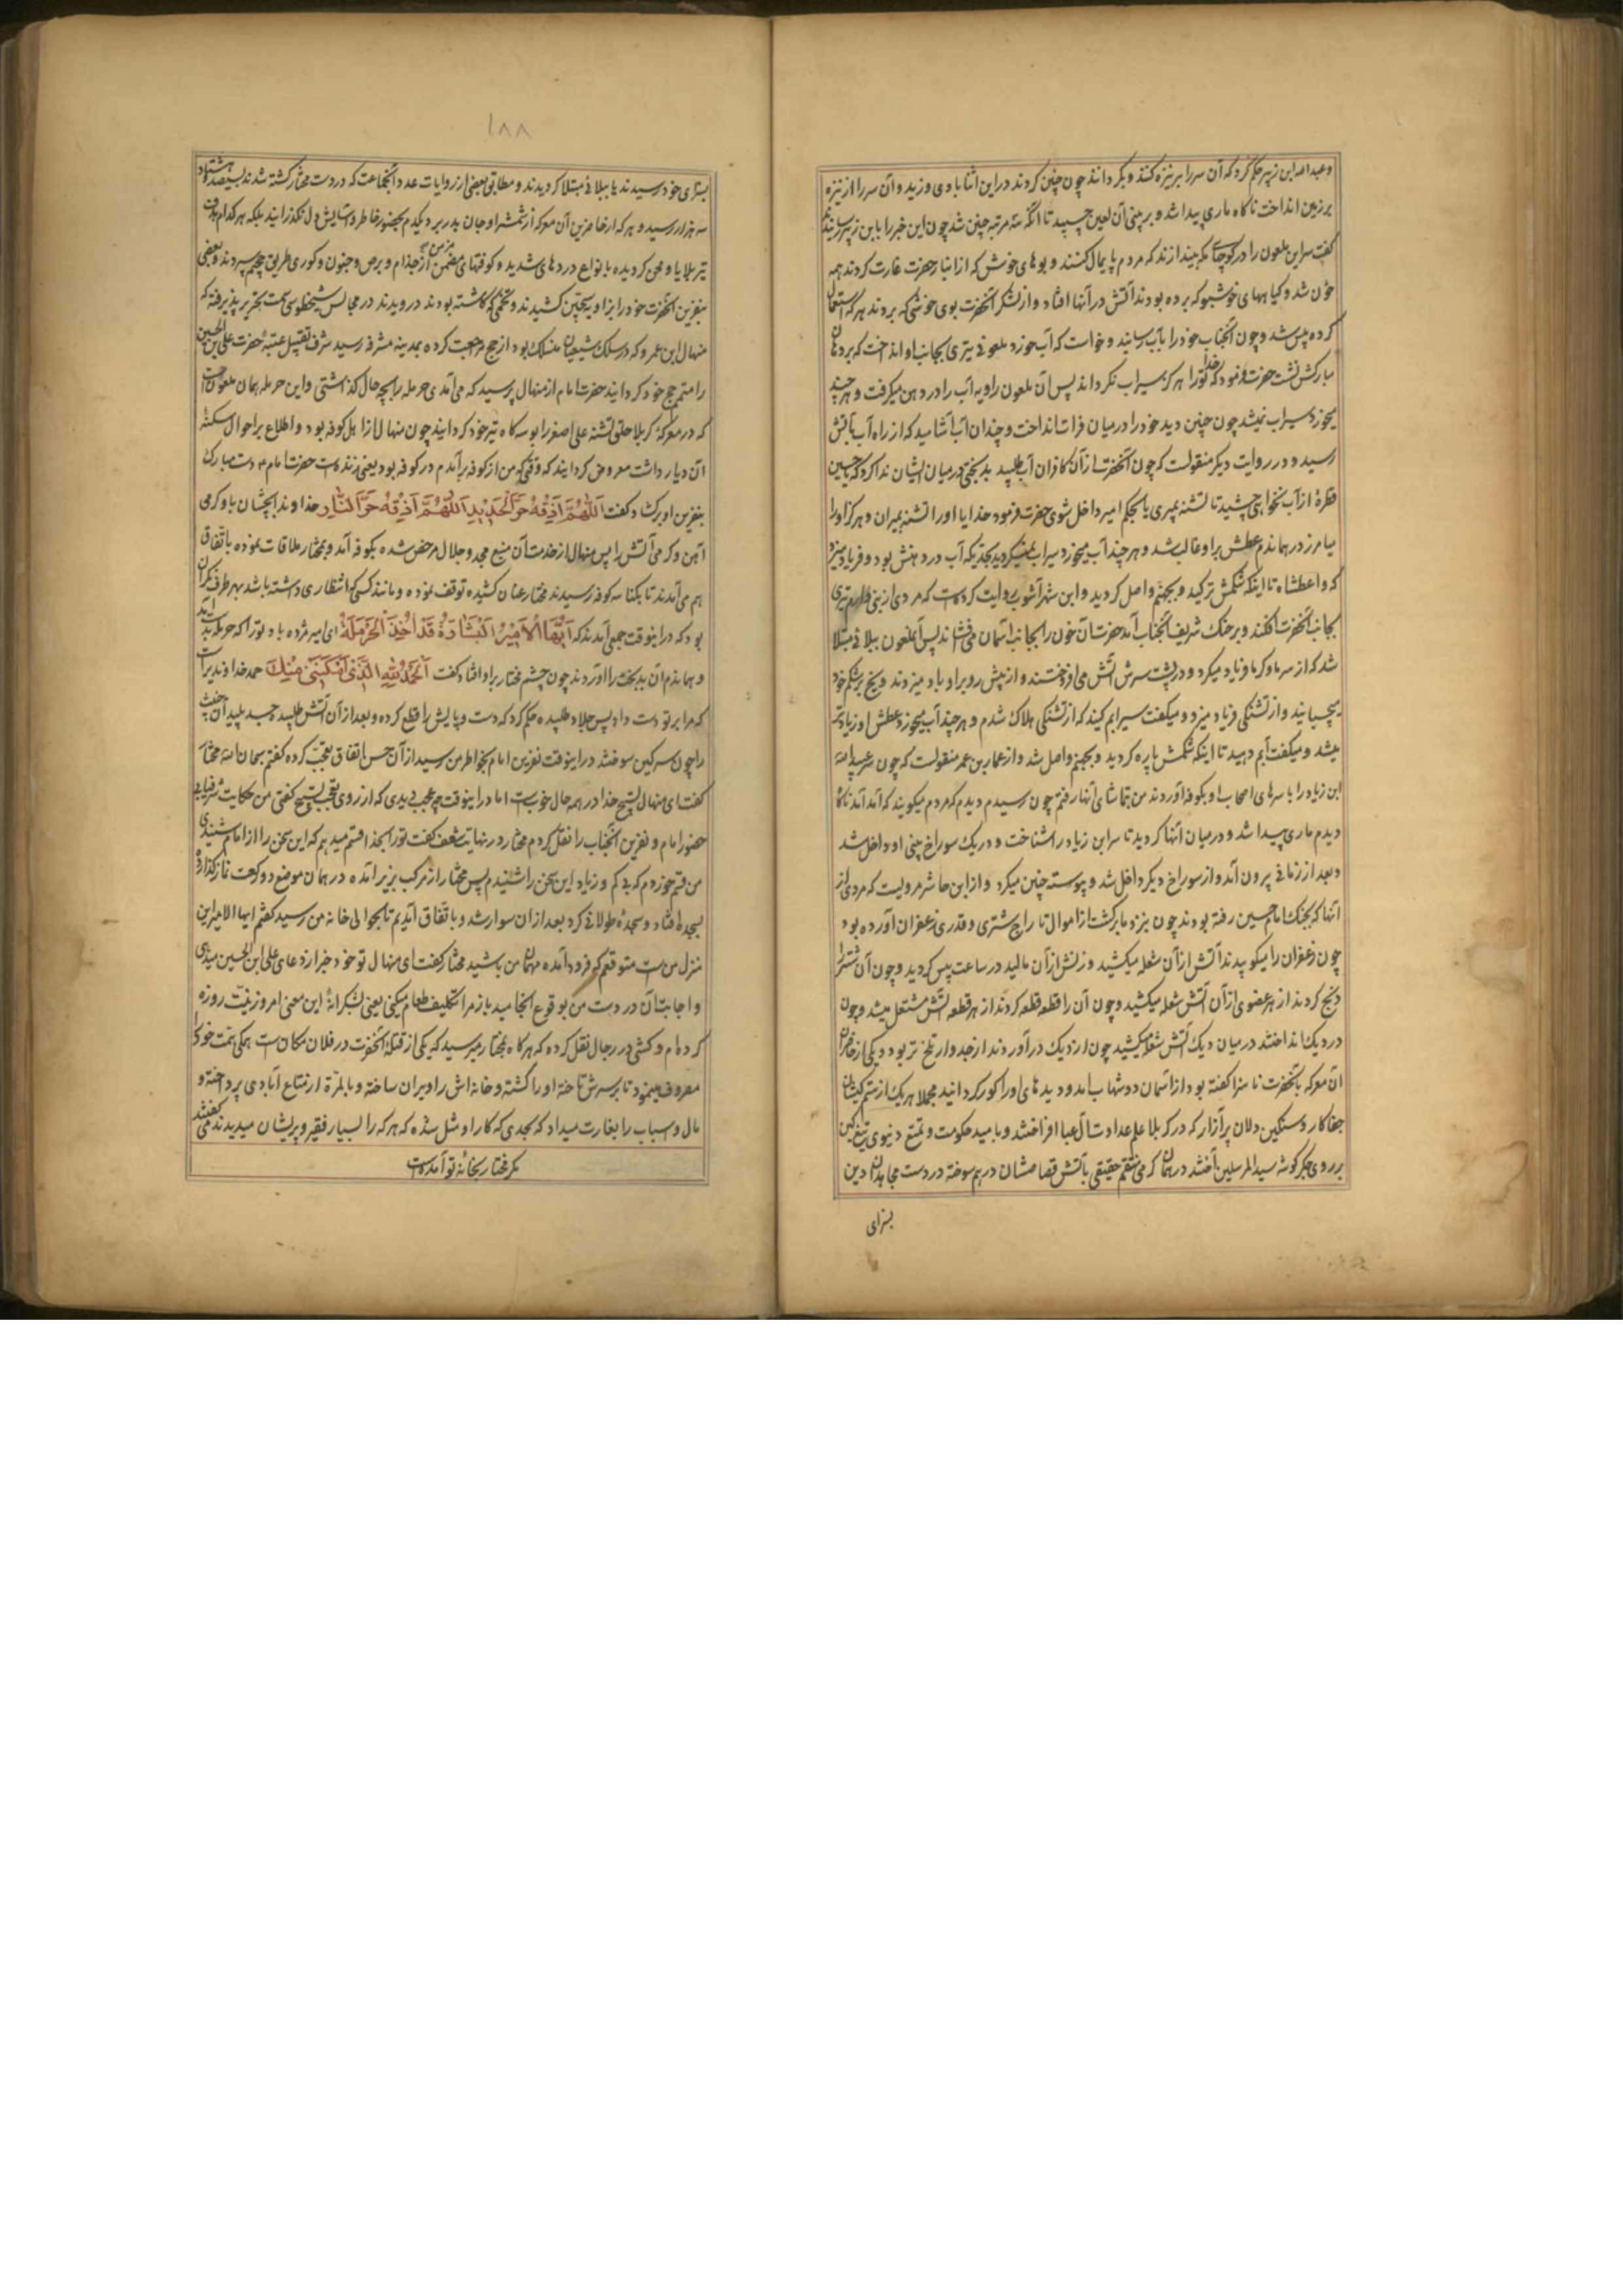 وعبدالله ابن زبیر حکم کرد که آن سر را بر نیزه کنند و بگردانند چون چنین کردند در این اثنا بادی وزید و آن سر را از نیزه
بر زمین انداخت ناکاه ماری پیدا شد و بر بینی آن لعین چسپید تا آنکه سه مرتبه چنین شد چون این خبر را بابن زبیر رسانیدند
کفت سر این ملعون را در کوچهای مکه بیندازند که مردم پایمال کنند و بوهای خوش که از انبار حضرت غارت کردند همه
خون شد و کیاههای خوشبو که برده بودند آتش در آنها افتاد و از لشکر آنحضرت بوی خوشی که بردند هر که استعمال
کرده پیس شد و چون آنجناب خود را بآب رسانید و خواست که آب خورد ملعونی تیری بجانب او انداخت که بر دهان
مبارکش نشست حضرت فرمود که خدا تو را هرکز سیراب نکرداند پس آن ملعون راویه آب را در دهن میکرفت و هر چند
میخورد سیراب نمیشد چون چنین دید خود را در میان فرات انداخت و چندان آب آشامید که از راه آب بآتش
رسید و در روایت دیکر منقولست که چون آنحضرت از آن کافران آب طلبید بدبختی در میان ایشان ندا کرد که یا حسین
قطرهٔ از آب نخواهی چشید تا تشنه بمیری یا بحکم امیر داخل شوی حضرت فرمود خدایا او را تشنه بمیران و هرکز او را
میامرز در همان دم عطش بر او غالب شد و هر چند آب میخورد سیراب نمیکردید بحدیکه آب در دهنش بود و فریاد میزد
که واعطشاه تا اینکه شکمش ترکید و بجهنم واصل کردید و ابن شهرآشوب روایت کرده است که مردی از بنی دارم تیری
بجانب آنحضرت افکند و بر حنک شریف آنجناب آمد حضرت آن خون را بجانب آسمان می فشاند پس آن ملعون ببلائی مبتلا
شد که از سرما و کرما فریاد میکرد و در پشت سرش آتش می افروختند و از پیش رو بر او باد میزدند و یخ بر شکم خود
میچسپانید و از تشنکی فریاد میزد و میکفت سیرابم کنید که از تشنکی هلاک شدم و هر چند آب میخورد عطش او زیادتر
میشد و میکفت آبم دهید تا اینکه شکمش پاره کردید و بجهنم واصل شد و از عمار بن عمر منقولست که چون سر عبیدالله
ابن زیاد را با سرهای اصحاب او بکوفه آوردند من بتماشای آنها رفتم چون رسیدم دیدم که مردم میکویند که آمد آمد ناکاه
دیدم ماری پیدا شد و در میان آنها کردید تا سر ابن زیاد را شناخت و در یک سوراخ بینی او داخل شد
و بعد از زمانی بیرون آمد و از سوراخ دیکر داخل شد و پیوسته چنین میکرد و از ابن حاشر مرویست که مردی از
آنها که بجنک امام حسین رفته بودند چون بنزد ما برکشت از اموال تاراج شتری و قدری زعفران آورده بود
چون زعفران را میکوبیدند آتش از آن شعله میکشید و زنش از آن مالید در ساعت پیس کردید و چون آن شتر را
ذبح کردند از هر عضوی از آن آتش شعله میکشید و چون آن را قطعه قطعه کردند از هر قطعه آتش مشتعل میشد و چون
در دیک انداختند در میان دیک آتش شعله میکشید چون از دیک در آوردند از جدوار تلخ تر بود و یکی از حاضران
آن معرکه بآنحضرت ناسزا کفته بود از آسمان دو شهاب بامد و دیدهای او را کور کردانید مجملا هر یک از ستم کیشان
جفاکار و سنکین دلان پرآزار که در کربلا علم عداوت آل عبا افراختند و بامید حکومت و تمتع دنیوی تیغ کین
بر روی جکر کوشه سید المرسلین آختند در همان کرمی منتقم حقیقی بآتش قصاصشان در هم سوخته در دست مجاهدان دین
بسزای
١٨٨
بسزای خود رسیدند یا ببلائی مبتلا کردیدند و مطابق بعضی از روایات عدد آنجماعت که در دست مختار کشته شدند بسیصد و هشتاد
سه هزار رسید و هر که از حاضرین آن معرکه از شمشیر او جان بدر برد یکدم بحضور خاطر و آسایش دل نکذرانید بلکه هر کدام هدف
تیر بلایا و محن کردیده بانواع دردهای شدید و کوفتهای مزمن از جذام و برص و جنون و کوری طریق جحیم سپردند و بعضی
بنفرین آنحضرت خود را بزاویه سجین کشیدند و تخمی که کاشته بودند درویدند در مجالس شیخ طوسی سمت تحریر پذیرفته که
منهال ابن عمرو که در سلک شیعیان منسلک بود از حج مراجعت کرده بمدینه مشرفه رسید شرف تقبیل عتبهٔ حضرت علی بن الحسین
را متمم حج خود کردانید حضرت امام از منهال پرسید که می آمدی حرمله را بچه حال کذاشتی و این حرمله همان ملعون است
که در معرکهٔ کربلا حلق تشنه علی اصغر را بوسه کاه تیر خود کردانید چون منهال از اهل کوفه بود و اطلاع بر احوال سکنهٔ
آن دیار داشت معروض کردانید که وقتی که من از کوفه بر آمدم در کوفه بود یعنی زنده است حضرت امام دست مبارک
بنفرین او برداشت و کفت اَللّٰهُمَّ اَذِقْهُ حَرَّ الْحَدیدِ اَللّٰهُمَّ اَذِقْهُ حَرَّ النّار خداوندا بچشان باو کرمی
آهن و کرمی آتش را پس منهال از خدمت آن منبع مجد و جلال مرخص شده بکوفه آمد و بمختار ملاقات نموده باتفاق
هم می آمدند تا بکناسه کوفه رسیدند مختار عنان کشیده توقف نموده و مانند کسی که انتظاری داشته باشد بهر طرف نکران
بود که در اینوقت جمعی آمدند که اَیُّهَا الْاَمیرُ اَلْبَشارَةُ قَدْ اُخِذَ الْحَرْمَلَةُ ای امیر مژده باد تو را که حرمله بدست آمد
و همان دم آن بدبخت را آوردند چون چشم مختار بر او افتاد کفت اَلْحَمْدُ لِلّٰهِ الَّذی اَمْکَنَنی مِنْکَ حمد خداوندیراست
که مرا بر تو دست داد پس جلاد طلبیده حکم کرد که دست و پایش را قطع کرده و بعد از آن آتش طلبید جسد پلید آن خبیث
را چون سرکین سوختند در اینوقت نفرین امام بخواطر من رسید از آن حسن اتفاق تعجب کرده کفتم سبحان الله مختار
کفت ای منهال تسبیح خدا در همه حال خوبست اما در اینوقت چه عجب دیدی که از روی تعجب تسبیح کفتی من حکایت شرفیابی
حضور امام و نفرین آنجناب را نقل کردم مختار در نهایت شعف کفت تو را بخدا قسم میدهم که این سخن را از امام شنیدی
من قسم خوردم که بی کم و زیاد این سخن را شنیدم پس مختار از مرکب بزیر آمده در همان موضع دو رکعت نماز کذارد و
بسجده افتاد و سجدهٔ طولانی کرد بعد از آن سوار شد و باتفاق آمدیم تا بحوالی خانه من رسید کفتم ایها الامیر این
منزل من است متوقعم که فرود آمده مهمان من باشید مختار کفت ای منهال تو خود خبر از دعای علی ابن الحسین میدهی
و اجابت آن در دست من بوقوع انجامید باز مرا تکلیف طعام میکنی یعنی بشکرانهٔ این معنی امروز نیت روزه
کرده ام و کشی در رجال نقل کرده که هرکاه بمختار میرسید که یکی از قتلهٔ آنحضرت در فلان مکان است همکی همت خود را
مصروف مینمود تا بر سرش تاخته او را کشته و خانه اش را ویران ساخته و بالمرة از متاع آبادی پرداخته و
مال و اسباب را بغارت میداد که بحدی که کار او مثل شده که هر که را بسیار فقیر و پریشان میدیدند می کفتند
مکر مختار بخانهٔ تو آمده است